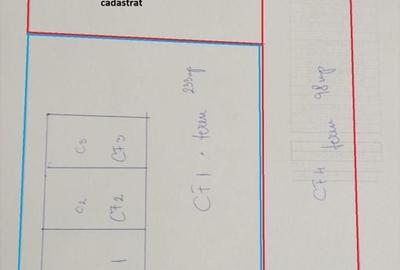 cadastrat
C3
CF3
C2
CF2
1
CF1 - teren 233mp
CF4 teren 98 mp